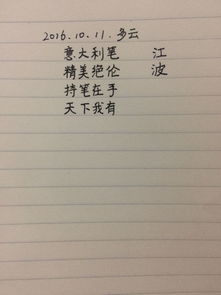 2016.10.11.多云
意大利笔 江
精美绝伦 波
持笔在手
天下我有